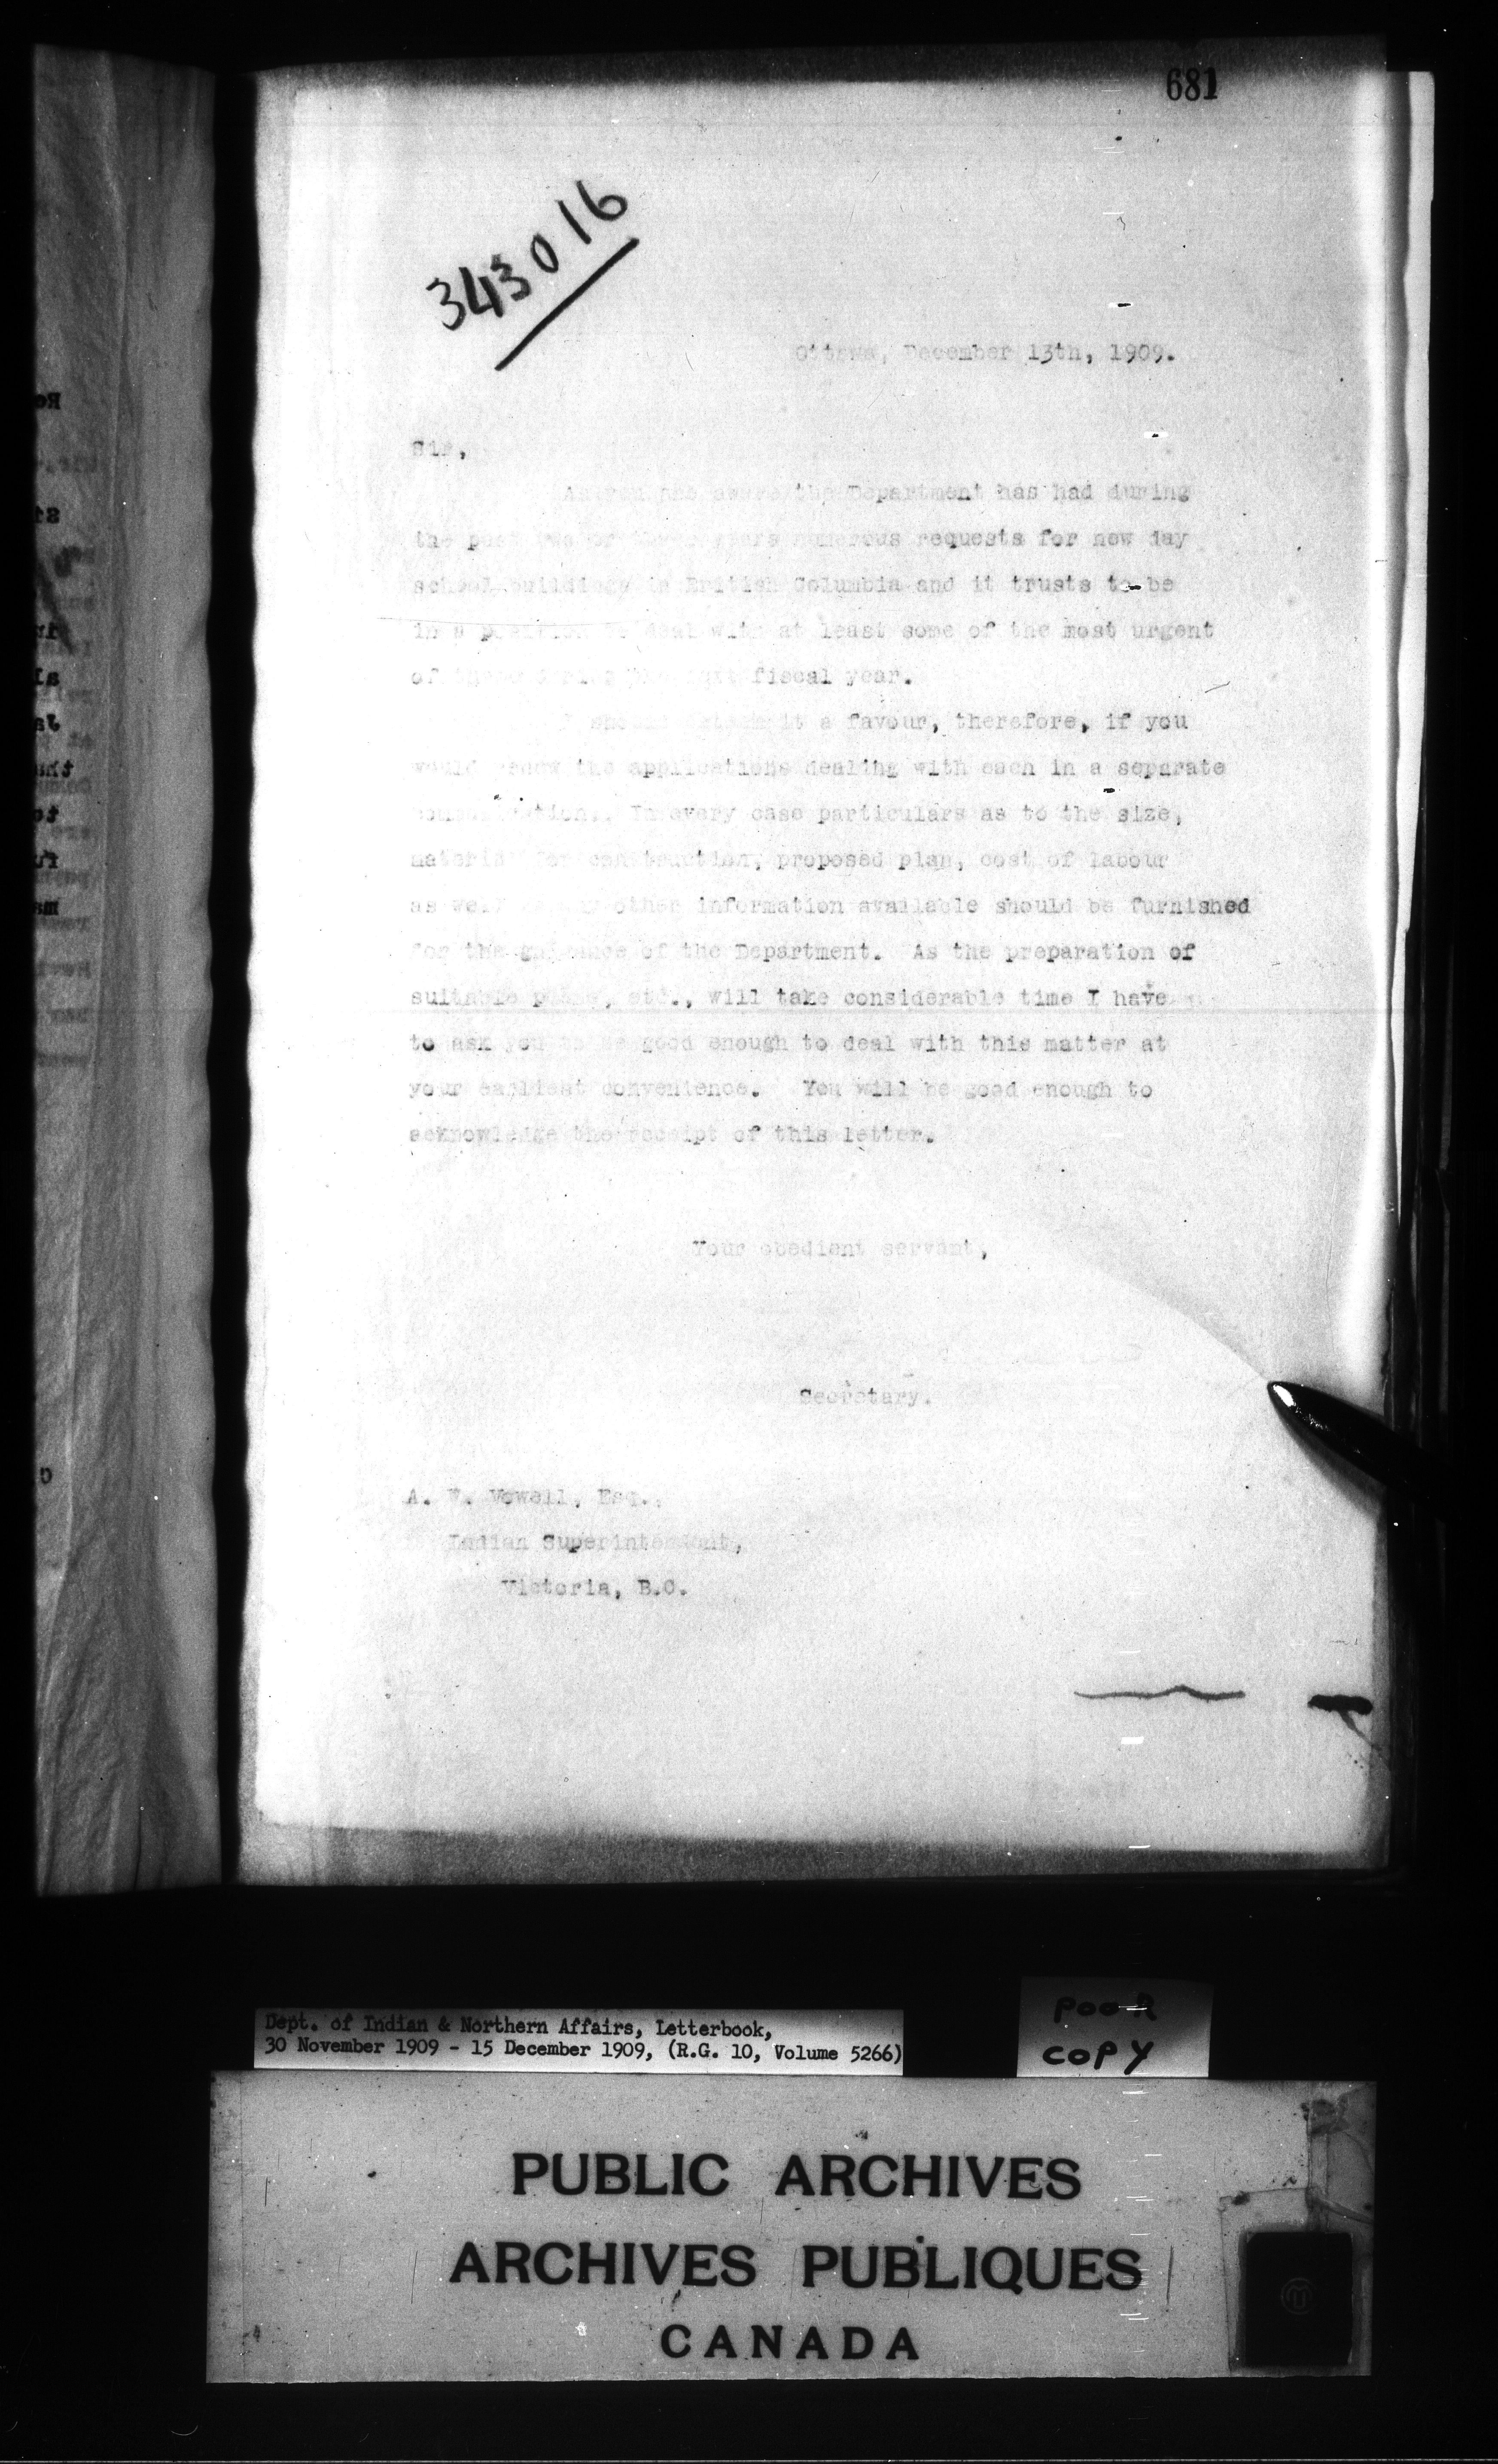 681
343016
Ottawa, December 13th, 1909.
Sir,
As you are aware the Department has had during
the past two or three years numerous requests for new day
school buildings in British Columbia and it trusts to be
in a position to deal with at least some of the most urgent
of these during the next fiscal year.
I should esteem it a favour, therefore, if you
would renew the applications dealing with each in a separate
communication. In every case particulars as to the size,
material for construction, proposed plan, cost of labour
as well as any other information available should be furnished
for the guidance of the Department. As the preparation of
suitable plans, etc., will take considerable time I have
to ask you to be good enough to deal with this matter at
your earliest convenience. You will be good enough to
acknowledge the receipt of this letter.
Your obedient servant,
Secretary.
A. W. Vowell, Esq.,
Indian Superintendent,
Victoria, B.C.
Dept. of Indian & Northern Affairs, Letterbook,
30 November 1909 - 15 December 1909, (R.G. 10, Volume 5266)
POOR
COPY
PUBLIC ARCHIVES
ARCHIVES PUBLIQUES
CANADA